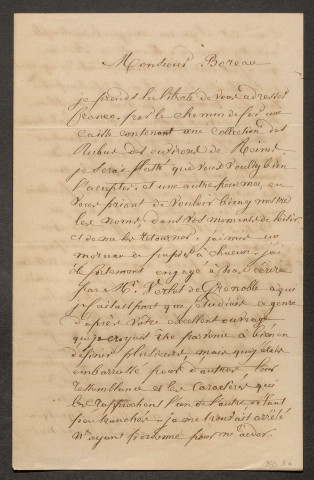 Monsieur Boreau
je prends la liberté de vous adresser
franco, par le chemin de fer une
caisse contenant une collection des
Rubus des environs de Reims.
je serai flatté que vous vouliez bien
l'accepter. et une autre pour moi, en
vous priant de vouloir bien y mettre
les noms dans vos moments de loisir
et de me les retourner. j'ai mis un
morceau de papier à chacun. j'ai
été fortement engagé à
par Mr. Verlot de Grenoble a qui
j'ai fait part que j'étudiais ce genre
d'après votre excellent ouvrage
que je croyais être parvenu à bien en
définir plusieurs, mais que j'étais
embarrassé pour d'autres, leur
ressemblance et les caractères qui
les rapprochent l'un de l'autre étant
peu tranchés. je me trouvais arrêté
n'ayant personne pour m'aider.